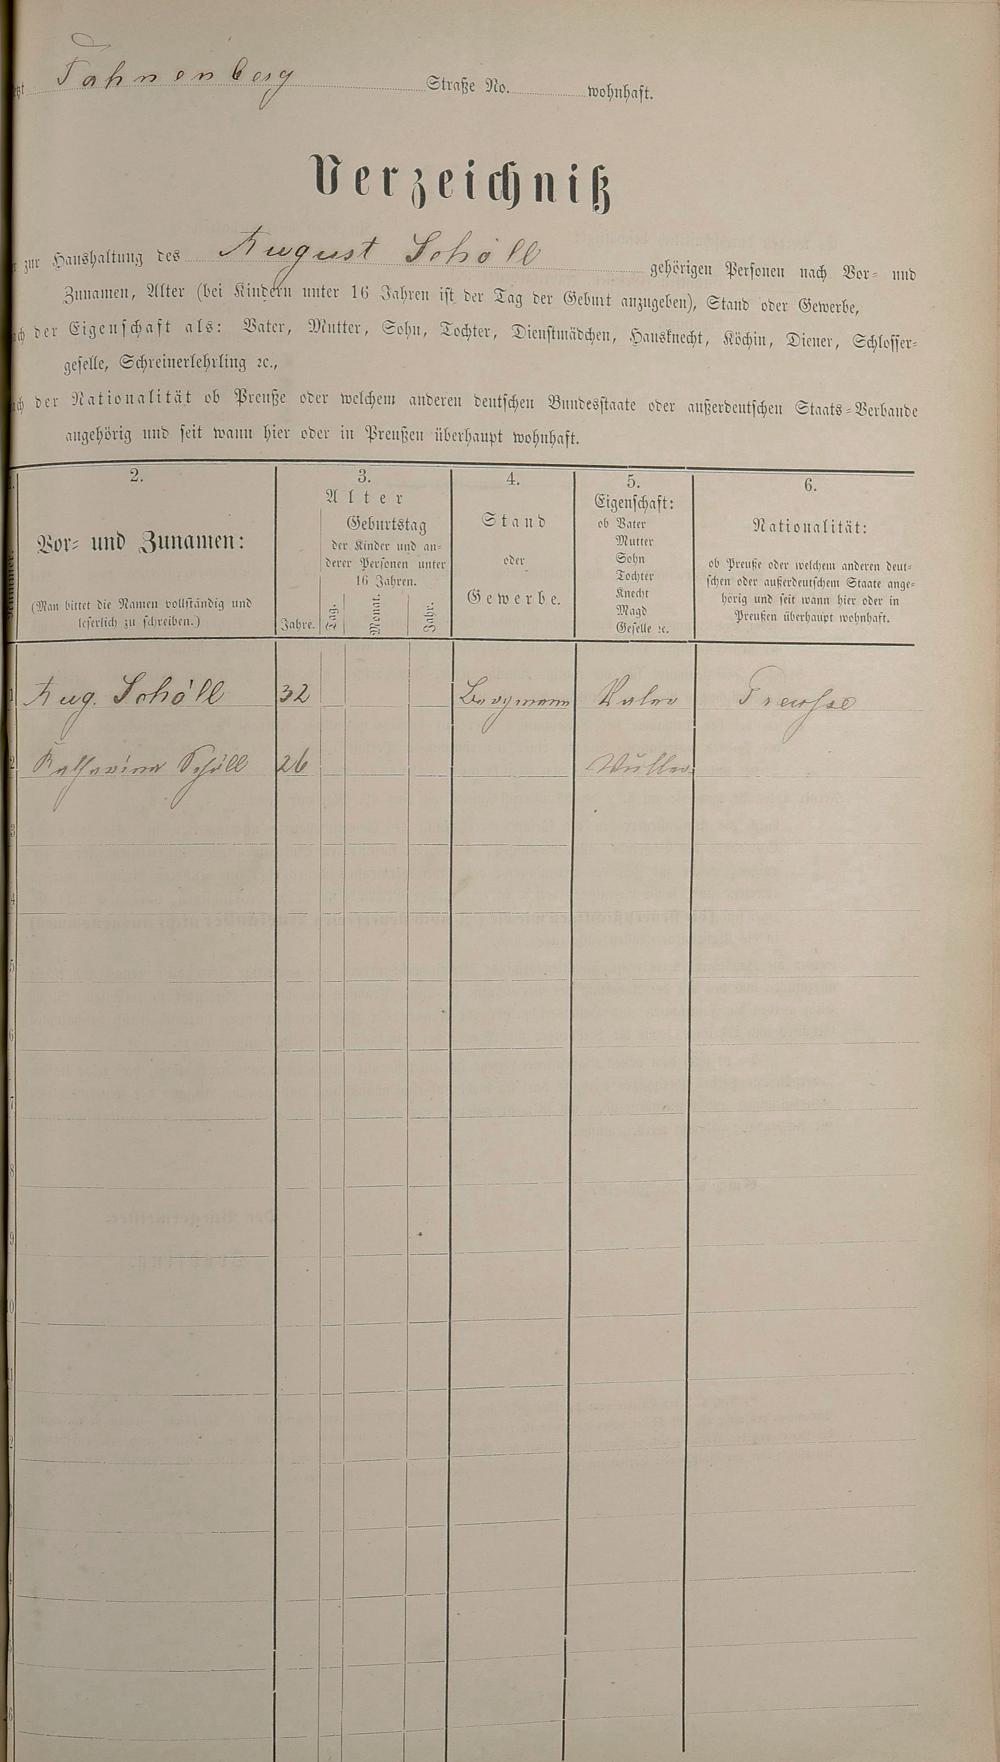 Fahnenberg Straße No. wohnhaft.
Verzeichniß
zur Haushaltung des August Schöll gehörigen Personen nach Vor- und
Zunamen, Alter (bei Kindern unter 16 Jahren ist der Tag der Geburt anzugeben), Stand oder Gewerbe,
der Eigenschaft als: Vater, Mutter, Sohn, Tochter, Dienstmädchen, Hausknecht, Köchin, Diener, Schlosser-
geselle, Schreinerlehrling ꝛc.,
der Nationalität ob Preuße oder welchem anderen deutschen Bundesstaate oder außerdeutschen Staats-Verbande
angehörig und seit wann hier oder in Preußen überhaupt wohnhaft.
2.
Vor- und Zunamen:
(Man bittet die Namen vollständig und
leserlich zu schreiben.)
3.
Alter
Geburtstag
der Kinder und an-
derer Personen unter
16 Jahren.
Jahre. Tag. Monat. Jahr.
4.
Stand
oder
Gewerbe.
5.
Eigenschaft:
ob Vater
Mutter
Sohn
Tochter
Knecht
Magd
Geselle ꝛc.
6.
Nationalität:
ob Preuße oder welchem anderen deut-
schen oder außerdeutschem Staate ange-
hörig und seit wann hier oder in
Preußen überhaupt wohnhaft.
1 Aug. Schöll 32 Bergmann Vater Preusse
2 Katharina Schöll 26 Mutter
3
4
5
6
7
8
9
10